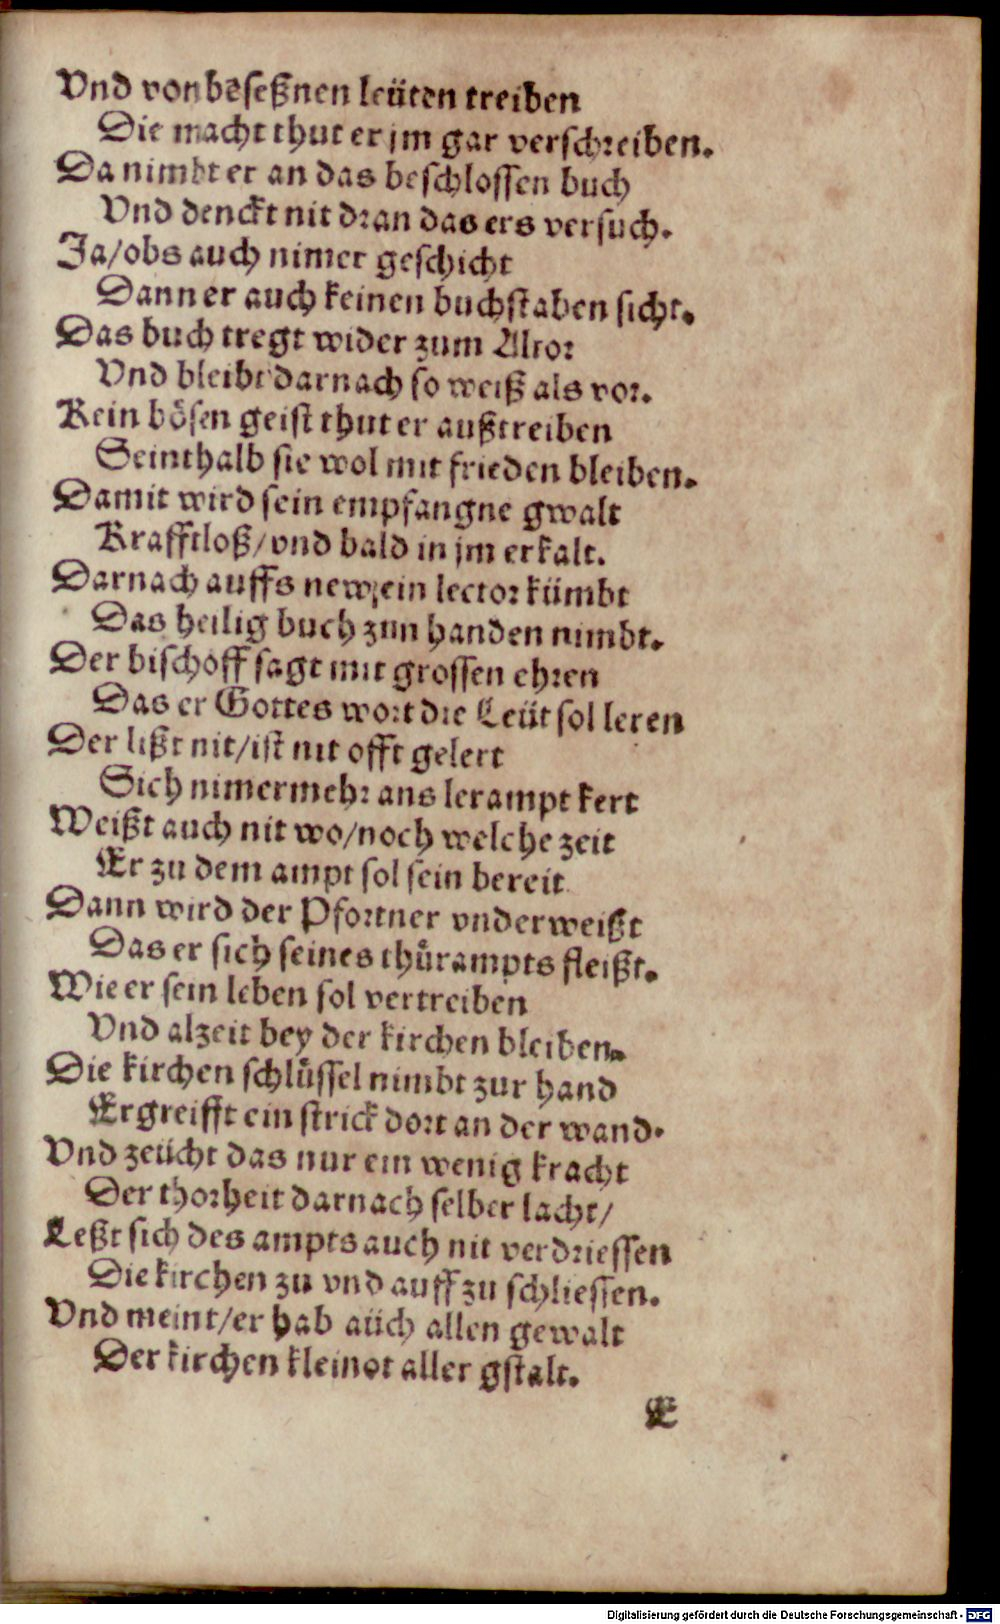 Vnd von beseßnen leüten treiben
Die macht thut er jm gar verschreiben.
Da nimbt er an das beschlossen buch
Vnd denckt nit dran das ers versuch.
Ja/obs auch nimer geschicht
Dann er auch keinen buchstaben sicht.
Das buch tregt wider zum Altor
Vnd bleibt darnach so weiß als vor.
Kein bösen geist thut er außtreiben
Seinthalb sie wol mit frieden bleiben.
Damit wird sein empfangne gwalt
Krafftloß/vnd bald in jm erkalt.
Darnach auffs new ein lector kümbt
Das heilig buch zun handen nimbt.
Der bischoff sagt mit grossen ehren
Das er Gottes wort die Leüt sol leren
Der lißt nit/ist nit offt gelert
Sich nimermehr ans lerampt kert
Weißt auch nit wo/noch welche zeit
Er zu dem ampt sol sein bereit
Dann wird der Pfortner vnderweißt
Das er sich seines thürampts fleißt.
Wie er sein leben sol vertreiben
Vnd alzeit bey der kirchen bleiben.
Die kirchen schlüssel nimbt zur hand
Ergreifft ein strick dort an der wand.
Vnd zeücht das nur ein wenig kracht
Der thorheit darnach selber lacht/
Leßt sich des ampts auch nit verdriessen
Die kirchen zu vnd auff zu schliessen.
Vnd meint/er hab aüch allen gewalt
Der kirchen kleinot aller gstalt.
E
Digitalisierung gefördert durch die Deutsche Forschungsgemeinschaft - DFG